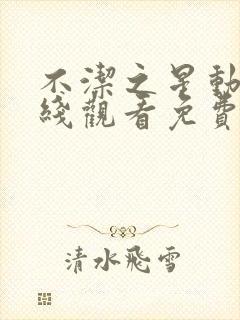 不潔之星動
綫觀看免費
清水飛雪